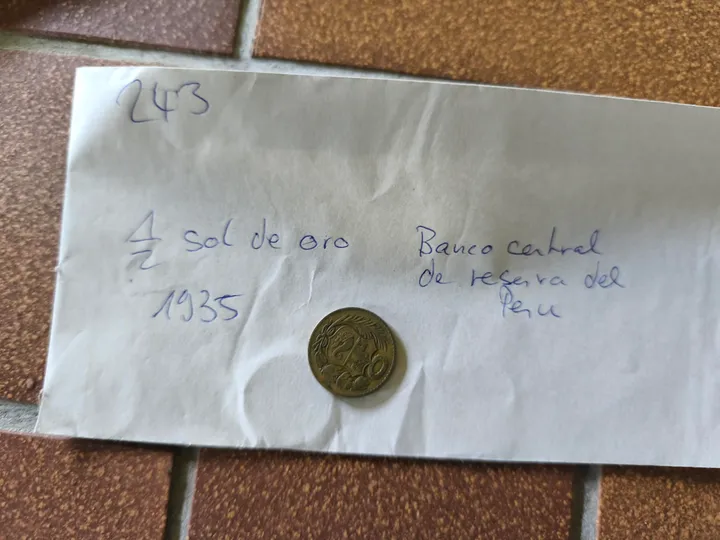 243
1/2 sol de oro
1935
Banco central
de reserva del
Peru